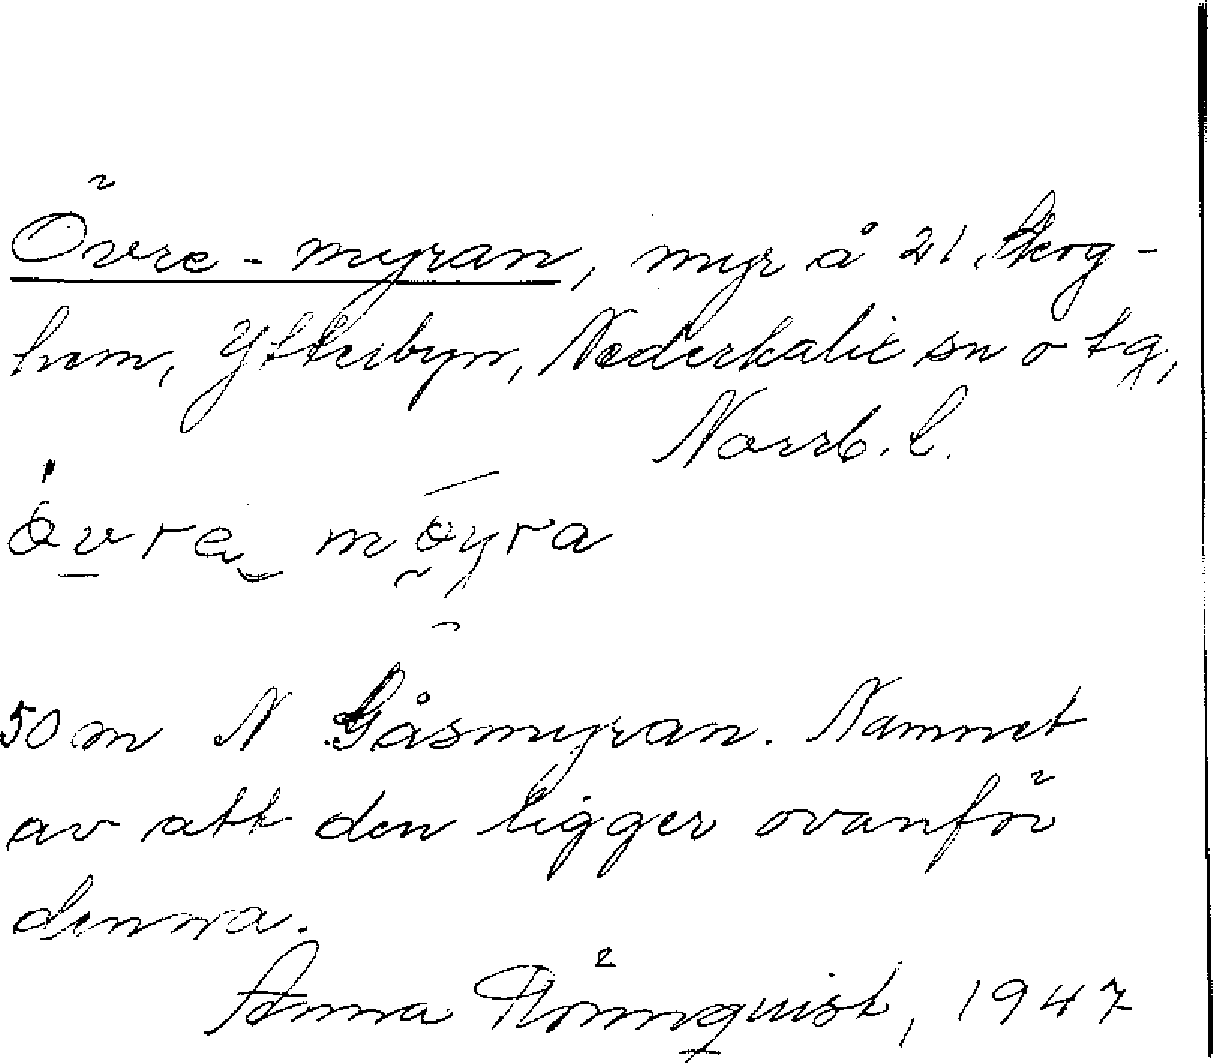 Övre-myran, myr å 21 Skog-
hem, Ytterbyn, Nederkalix sn o tg,
Norrb. l.
övre möyra
50 m N Gåsmyran. Namnet
av att den ligger ovanför
denna.
Anna Rönnquist, 1947